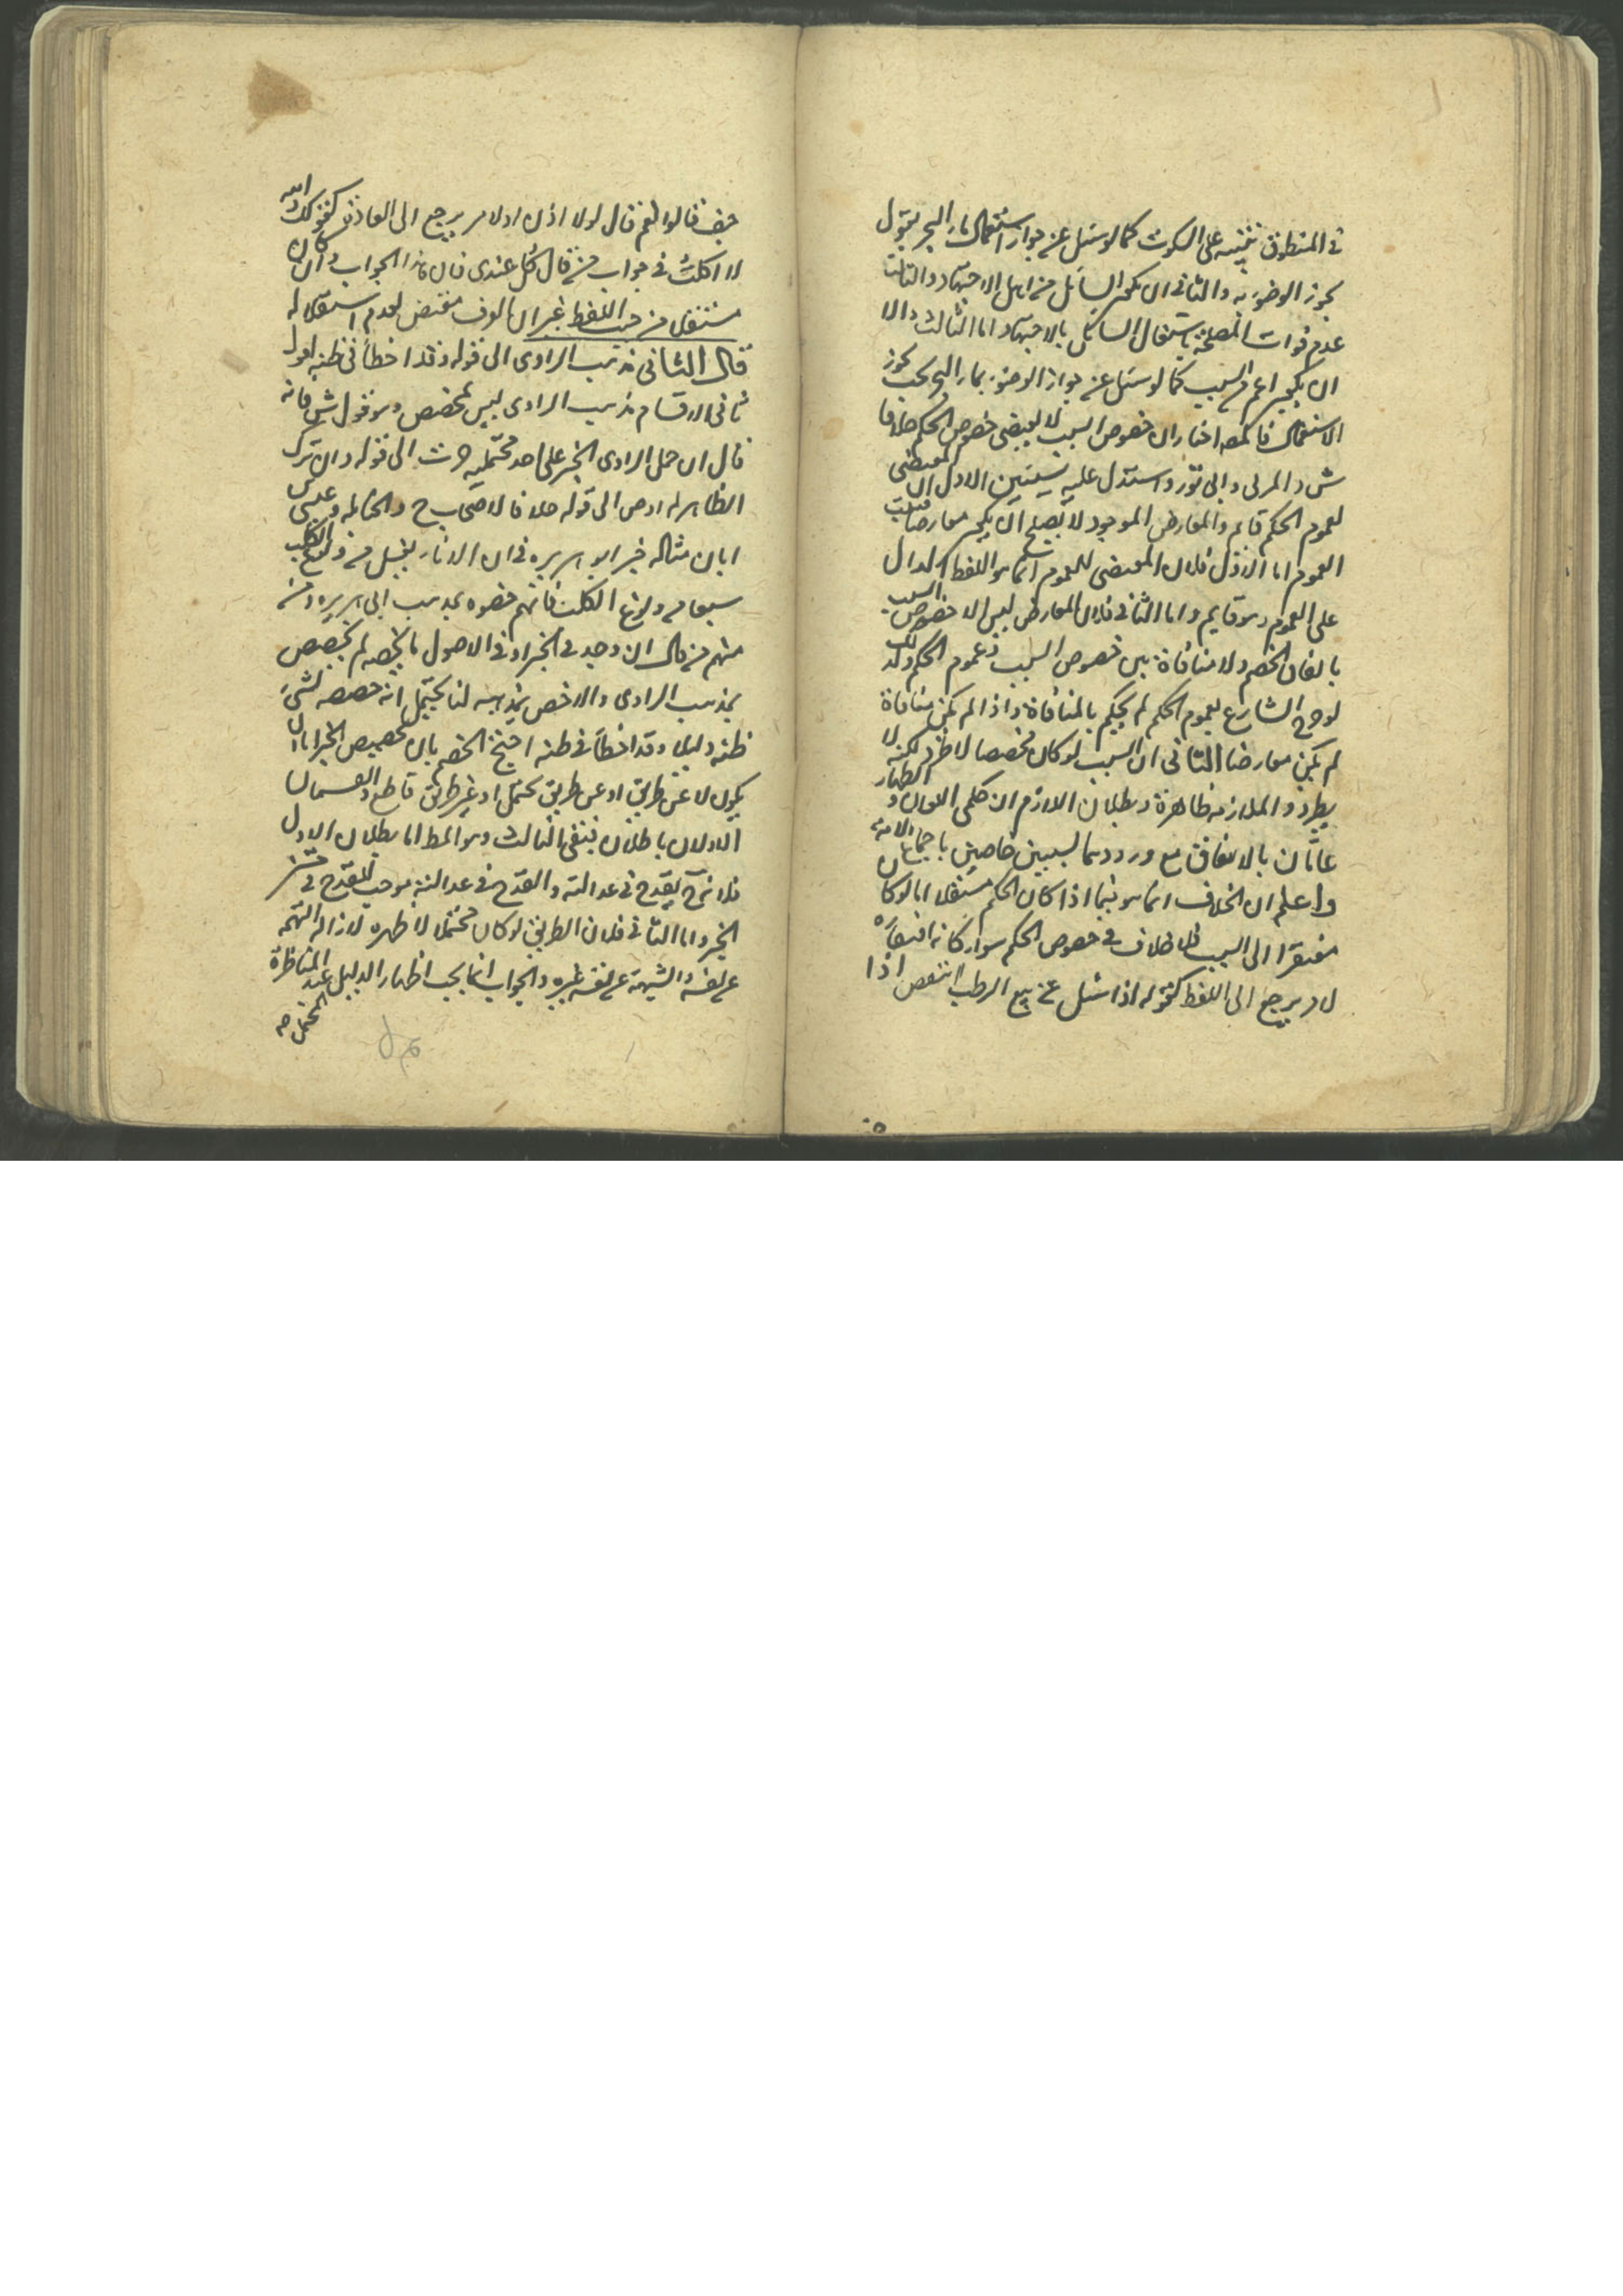 في المنطوق تنبيه على السكوت كما لو سئل عن جواز استعمال ماء البحر يقول
يجوز الوضوء به والثاني ان يكون السائل من اهل الاجتهاد والثالث
عدم فوات المصلحة باشتغال السائل بالاجتهاد اما الثالث والا
ان يكون اعم من السبب كما لو سئل عن جواز الوضوء بماء البحر يجوز
الاستعمال فالمصـ اختار ان خصوص السبب لا يقتضي خصوص الحكم خلافا
ش والمزني وابي ثور واستدل عليه بشيئين الاول ان المقتضى
لعموم الحكم قائم والمعارض الموجود لا يصلح ان يكون معارضا
العموم اما الاول فلان المقتضى للعموم انما هو اللفظ الدال
على العموم وهو قايم واما الثاني فلان المعارض ليس الا خصوص السبب
باتفاق الخصم ولا منافاة بين خصوص السبب وعموم الحكم ولذلك
لو صرح الشارع بعموم الحكم لم يحكم بالمنافاة واذا لم يكن منافاة
لم يكن معارضا الثاني ان السبب لو كان مخصصا لاطرد لكنه لا
يطرد والملازمة ظاهرة وبطلان اللازم ان حكمي اللعان والظهار
عامان بالاتفاق مع ورودهما لسببين خاصين باجماع الامة
واعلم ان الخلاف انما هو فيما اذا كان الحكم مستقلا اما لو كان
مفتقرا الى السبب فلا خلاف في خصوص الحكم سواء كان افتقاره
لامر يرجع الى اللفظ كقوله اذا سئل عن بيع الرطب اينقص اذا
جف فقالوا نعم قال فلا اذن او لامر يرجع الى العادة كقولك والله
لا اكلت في جواب من قال كل عندي فان هذا الجواب وان كان
مستقلا من حيث اللفظ غير ان العرف مقتض لعدم استقلاله
قال الثاني مذهب الراوي الى قوله وقد اخطأ في ظنه اقول
ثاني الاقسام مذهب الراوي ليس بمخصص وهو قول ش فانه
قال ان حمل الراوي الخبر على احد محتمليه الى قوله وان ترك
الظاهر الى قوله خلافا لاصحاب ح والحنابلة وعيسى بن
ابان مثاله خبر ابو هريرة في ان الاناء يغسل من ولوغ الكلب
سبعا من ولوغ الكلب فانهم خصوه بمذهب ابي هريرة ومنهم
منهم من قال ان وجد في الخبر او في الاصول ما يخصه لم يخصص
بمذهب الراوي والا خص بمذهبه لنا يحتمل انه خصصه لشيء
ظنه دليلا وقد اخطأ في ظنه احتج الخصم بان تخصيص الخبر اما ان
يكون لا عن طريق او عن طريق محتمل او عن طريق قاطع والقسمان
الاولان باطلان فبقي الثالث وهو المط اما بطلان الاول
فلانه ح يقدح في عدالته والقدح في عدالته يوجب القدح في متن
الخبر واما الثاني فلان الطريق لو كان محتملا لاظهره لازالة التهمة
عن نفسه والشبهة عن نفس غيره والجواب انما يجب اظهار الدليل عند المناظرة